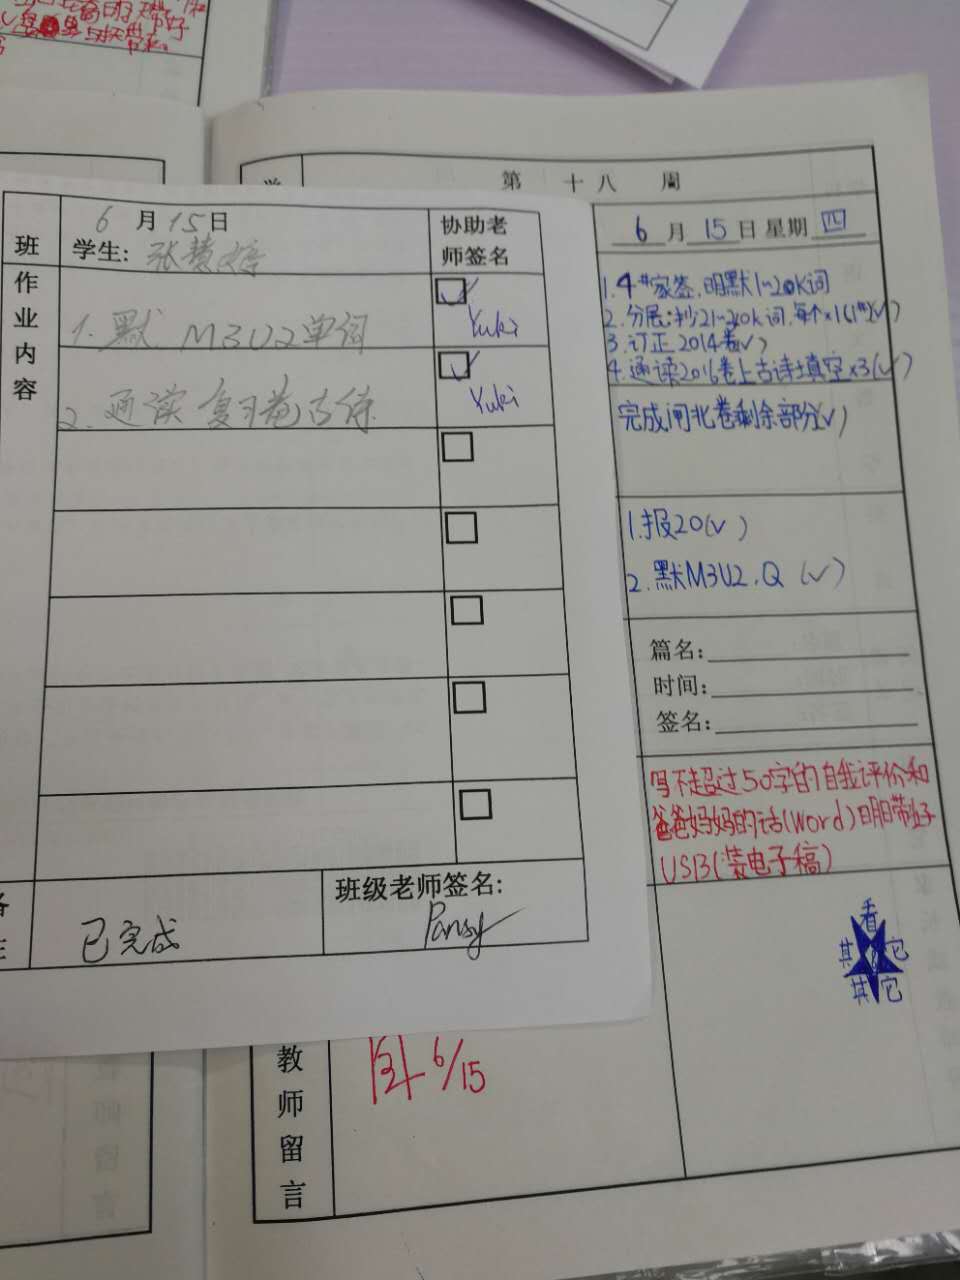 第 十八 周
6月15日
学生:
协助老
师签名
班
作
业
内
容
1. 默 M3U2单词
Yuki
2. 通读 复习卷古诗
Yuki
班级老师签名:
已完成
Pansy
6月15日星期四
1. 4#家签.明默1~20K词
2. 分层:抄21~30K词.每个×1(1#)(√)
3. 订正2014卷(√)
4. 通读2016卷上古诗填空×3(√)
完成闸北卷剩余部分(√)
1.报20(√)
2. 默M3U2.Q (√)
篇名:
时间:
签名:
写不超过50字的自我评价和
爸爸妈妈的话(Word)明日带好
USB(装电子稿)
看
其它
其它
教
师
留
言
6/15